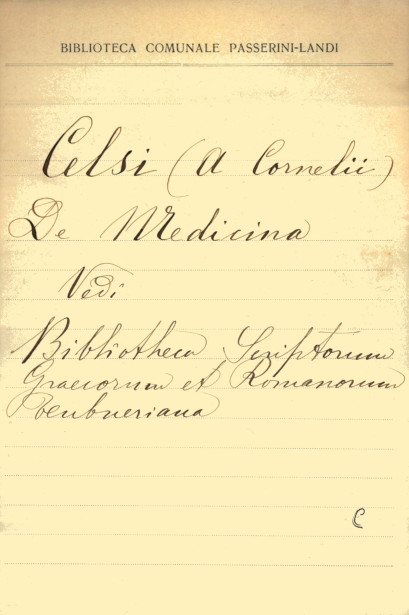 BIBLIOTECA COMUNALE PASSERINI-LANDI
Celsi (A Cornelii)
De Medicina
Vedi
Bibliotheca Scriptorum
Graecorum et Romanorum
Teubneriana
C